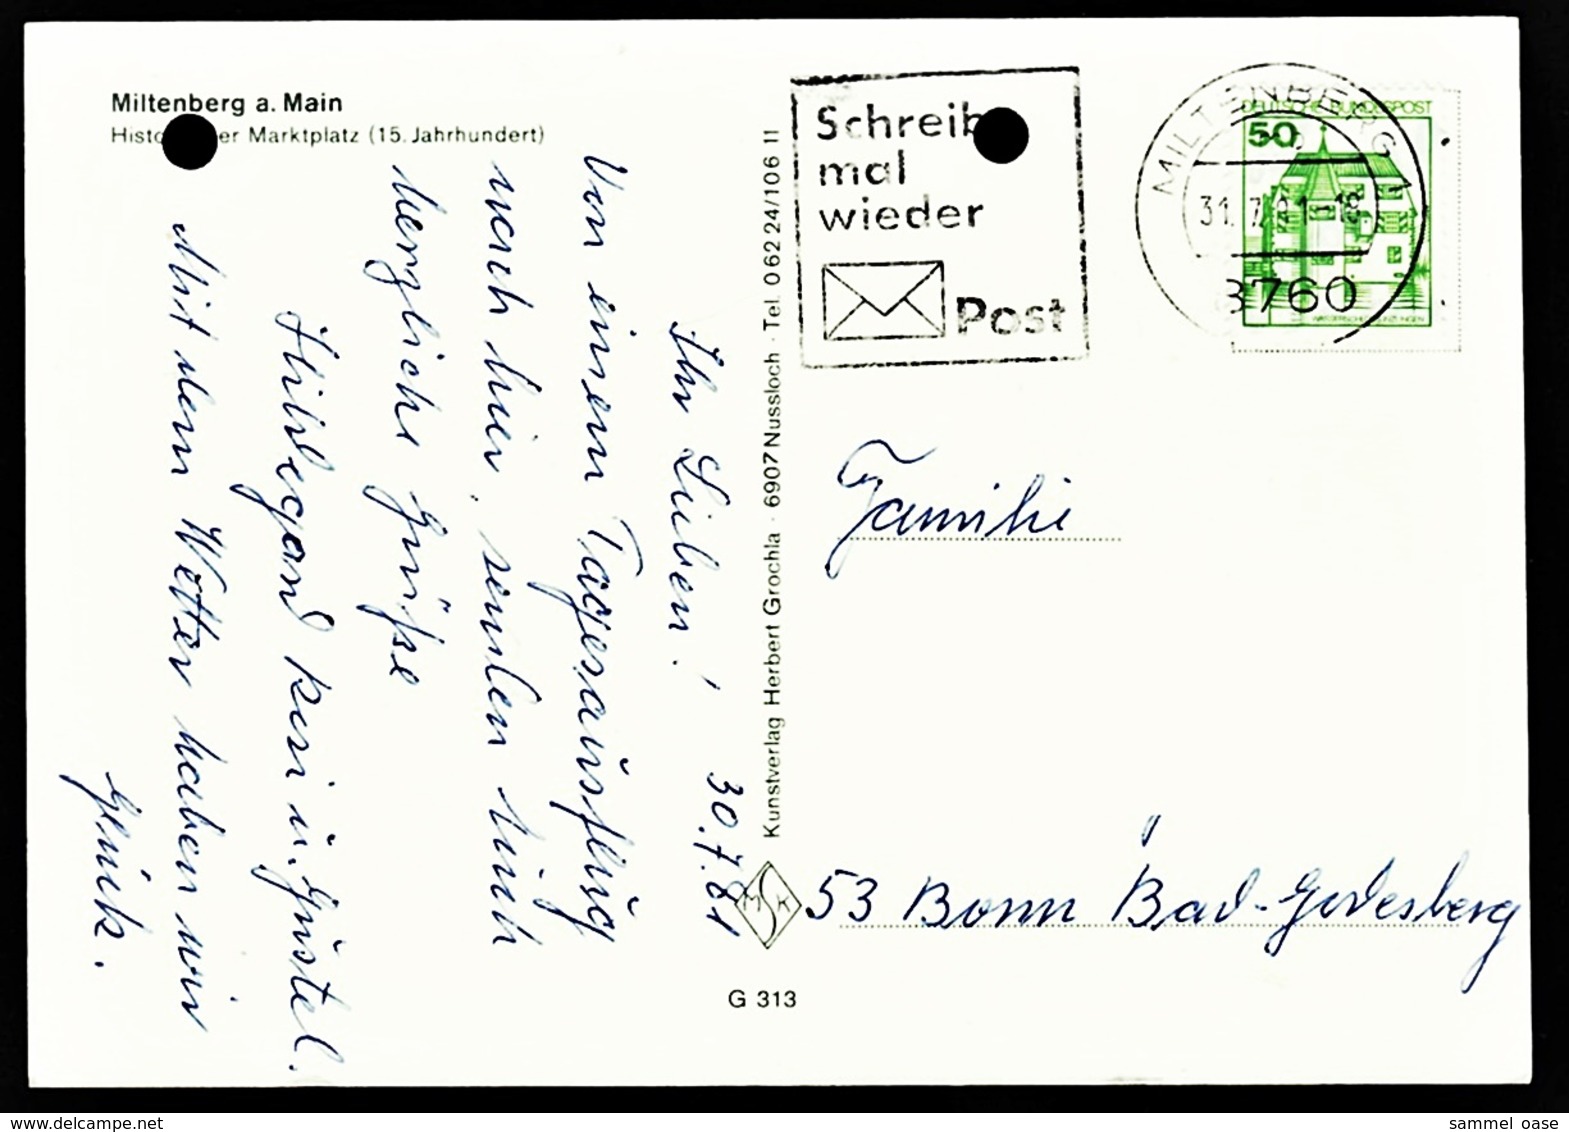 Miltenberg a. Main
Histo er Marktplatz (15. Jahrhundert)
30.7.81
Ihr Lieben!
Von einem Tagesausflug
nach hier, senden Euch
herzliche Grüße
Hildegard u. Gustel.
Mit dem Wetter haben wir
Glück.
Kunstverlag Herbert Grochla · 6907 Nussloch · Tel. 0 62 24/106 11
G 313
Schreib
mal
wieder
Post
MILTENBERG 1
31. 7. 81-18
8760
DEUTSCHE BUNDESPOST
50
Familie
53 Bonn Bad-Godesberg
delcampe.net
sammel oase